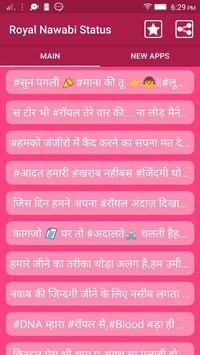 6:29 PM
Royal Nawabi Status
MAIN
NEW APPS
#सुन पगली 🎉#माना की तू 👉👧#लू...
स टोर भी #रॉयल तेरे यार की....ना लोड़ मैने
#हमको जंजीरो में कैद करने का सपना मत दे
#आदत हमारी #खराब नहींबस #जिंदगी थो
जिस दिन हमने अपना #रॉयल अंदाज़ दिखा
कागजो 📋 पर तो #अदालते चलती हैं...
हमारे जीने का तरीका थोड़ा अलग है,हम उमी
नवाब की जिन्दगी जीने के लिए नसीब लगता
#DNA म्हारा #रॉयल सै,#Blood बड़ा ही